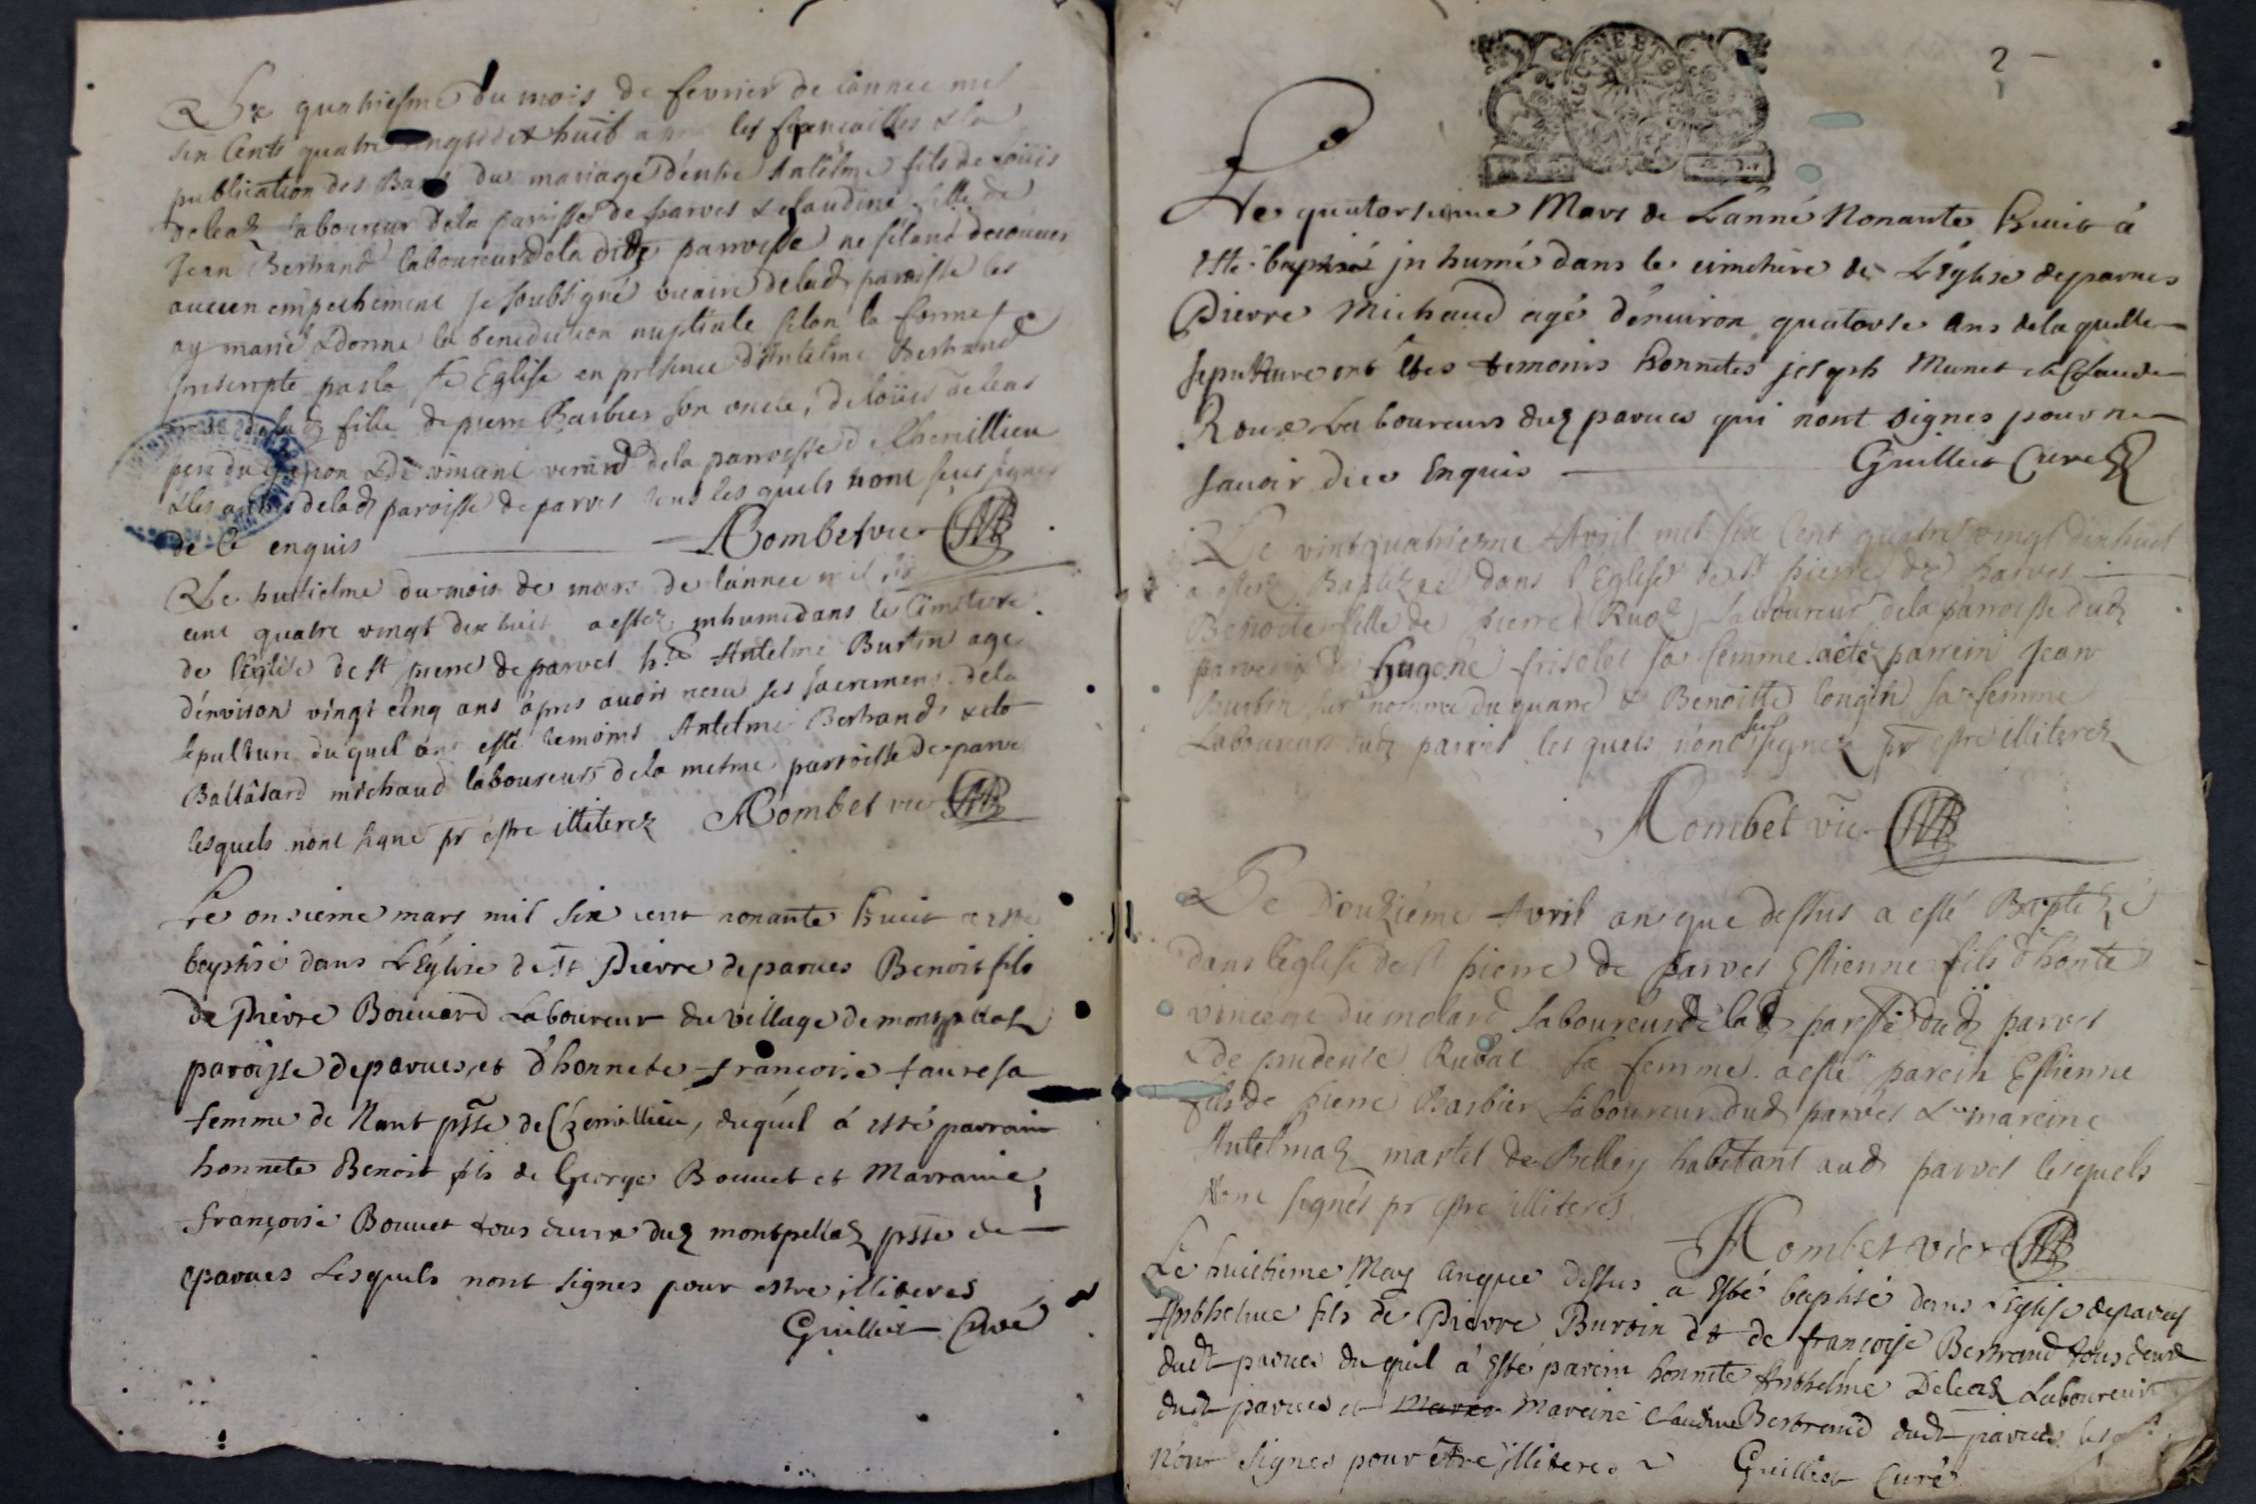 Le quatriesme du mois de fevrier de lannee mil
six Cents quatre vingt dix huit les fiancailles & la
publication des Bans du mariage d'entre Antelme fils de Loüis
deleaz laboureur dela paroisse de parves & Claudine fille de
Jean Bertrand laboureur dela ditte parroisse ne sestant decouver
aucun empechement je soubsigné vicaire de lad paroisse les
ay marié & donné la benediction nuptiale selon la forme
prescripte par la ste Eglise en presence d'Antelme Bertrand
fille de pierre Barbier son oncle, de loüis deleas
pere du garçon & de vincent verard dela parroisse de Chemillieu
& les autres delad paroisse de parves tous les quels nont sceus signer
de ce enquis Rombet vic
Le huitiesme du mois de mars de lannee mil six
cent quatre vingt dix huit a estez inhumé dans le Cimitiere
de l'eglise de st pierre de parves h.te Antelme Burtin agé
d'environ vingt cinq ans apres avoir receu ses sacremens dela
sepulture du quel ont esté temoins Antelme Bertrand &
Baltasard michaud laboureurs de la mesme parroisse de parve
lesquels nont signé pr estre illiterez Rombet vic
Le onsieme mars mil six cent nonante huict a esté
baptisé dans L'Eglise de st Pierre de parves Benoit fils
de Pierre Bouvard Laboureur du village de montpellaz
paroisse de parves, et d'honnete françoise faure sa
femme de Nant psse de Chemillieu, duquel á esté parrain
honnete Benoit fils de George Bouvet et Marraine
françoise Bouvet tous deux dud montpellaz psse de
parves Lesquels nont signes pour estre illiteres
Guilliet Curé
2
Le quatorsieme Mars de L'anné Nonante huict á
esté baptisé jnhumé dans le cimetiere de L'église de parves
Pierre Michaud agé d'environ quatorse ans de laquelle
sepulture ont estes temoins honnetes joseph Munet et Claude
Roux Laboureurs dud parves qui nont signes pour ne
savoir de ce Enquis Guilliet Curé
Le vint quatrieme Avril mil six Cent quatre vingt dix huit
a estez Baptizée dans l'Eglise de st pierre de parves
Benoite fille de pierre Laboureur dela parroisse dud
parves & de Hugene frisolet sa femme. a été parrein Jean
Burtin & Benoitte longin sa femme
Laboureurs dud parves les quels n'ont sceu signez pr estre illiterez
Rombet vic
Le Douziéme Avril an que dessus a esté Baptizé
dans l'eglise de st pierre de parves Estienne fils d'honte
vincent dumolard laboureur de lad parsse dud parves
& de prudente Rubat sa femme. a esté parein Estienne
fils de pierre Barbier laboureur dud parves & mareine
Antelmaz martel de Belley habitant aud parves lesquels
Nont signés pr estre illiteres
Rombet vic
Le huictieme May an que dessus a Esté baptisé dans l'Eglise de parves
Anthelme fils de Pierre Burtin et de françoise Bertrand tous deux
dudt parves du quil á Esté parein honnete Anthelme Deleaz Laboureur
dudt parves et Marei Mareine Claudine Bertrand dudt parves
n'ont signes pour être illiteres Guilliet Curé